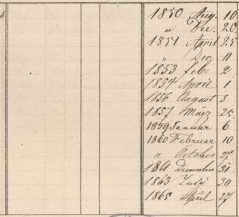 1850 Aug. 10
" Dec. 20
1851 April 25
" 11
1853 Febr. 2
1854 April 1
1856 August 3
1857 März 25
1859 Januar 6
1860 Februar 10
" October
1861 December
1863 July 30
1865 April 17